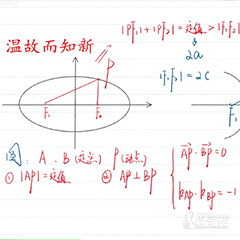 温故而知新
|PF₁|+|PF₂|=定值>|F₁F₂|
2a
|F₁F₂|=2C
P
F₁
F₂
F₁
圆: A、B(定点) P(动点)
① |AP|=定值 ② AP⊥BP
AP·BP=0
k_AP·k_BP=-1